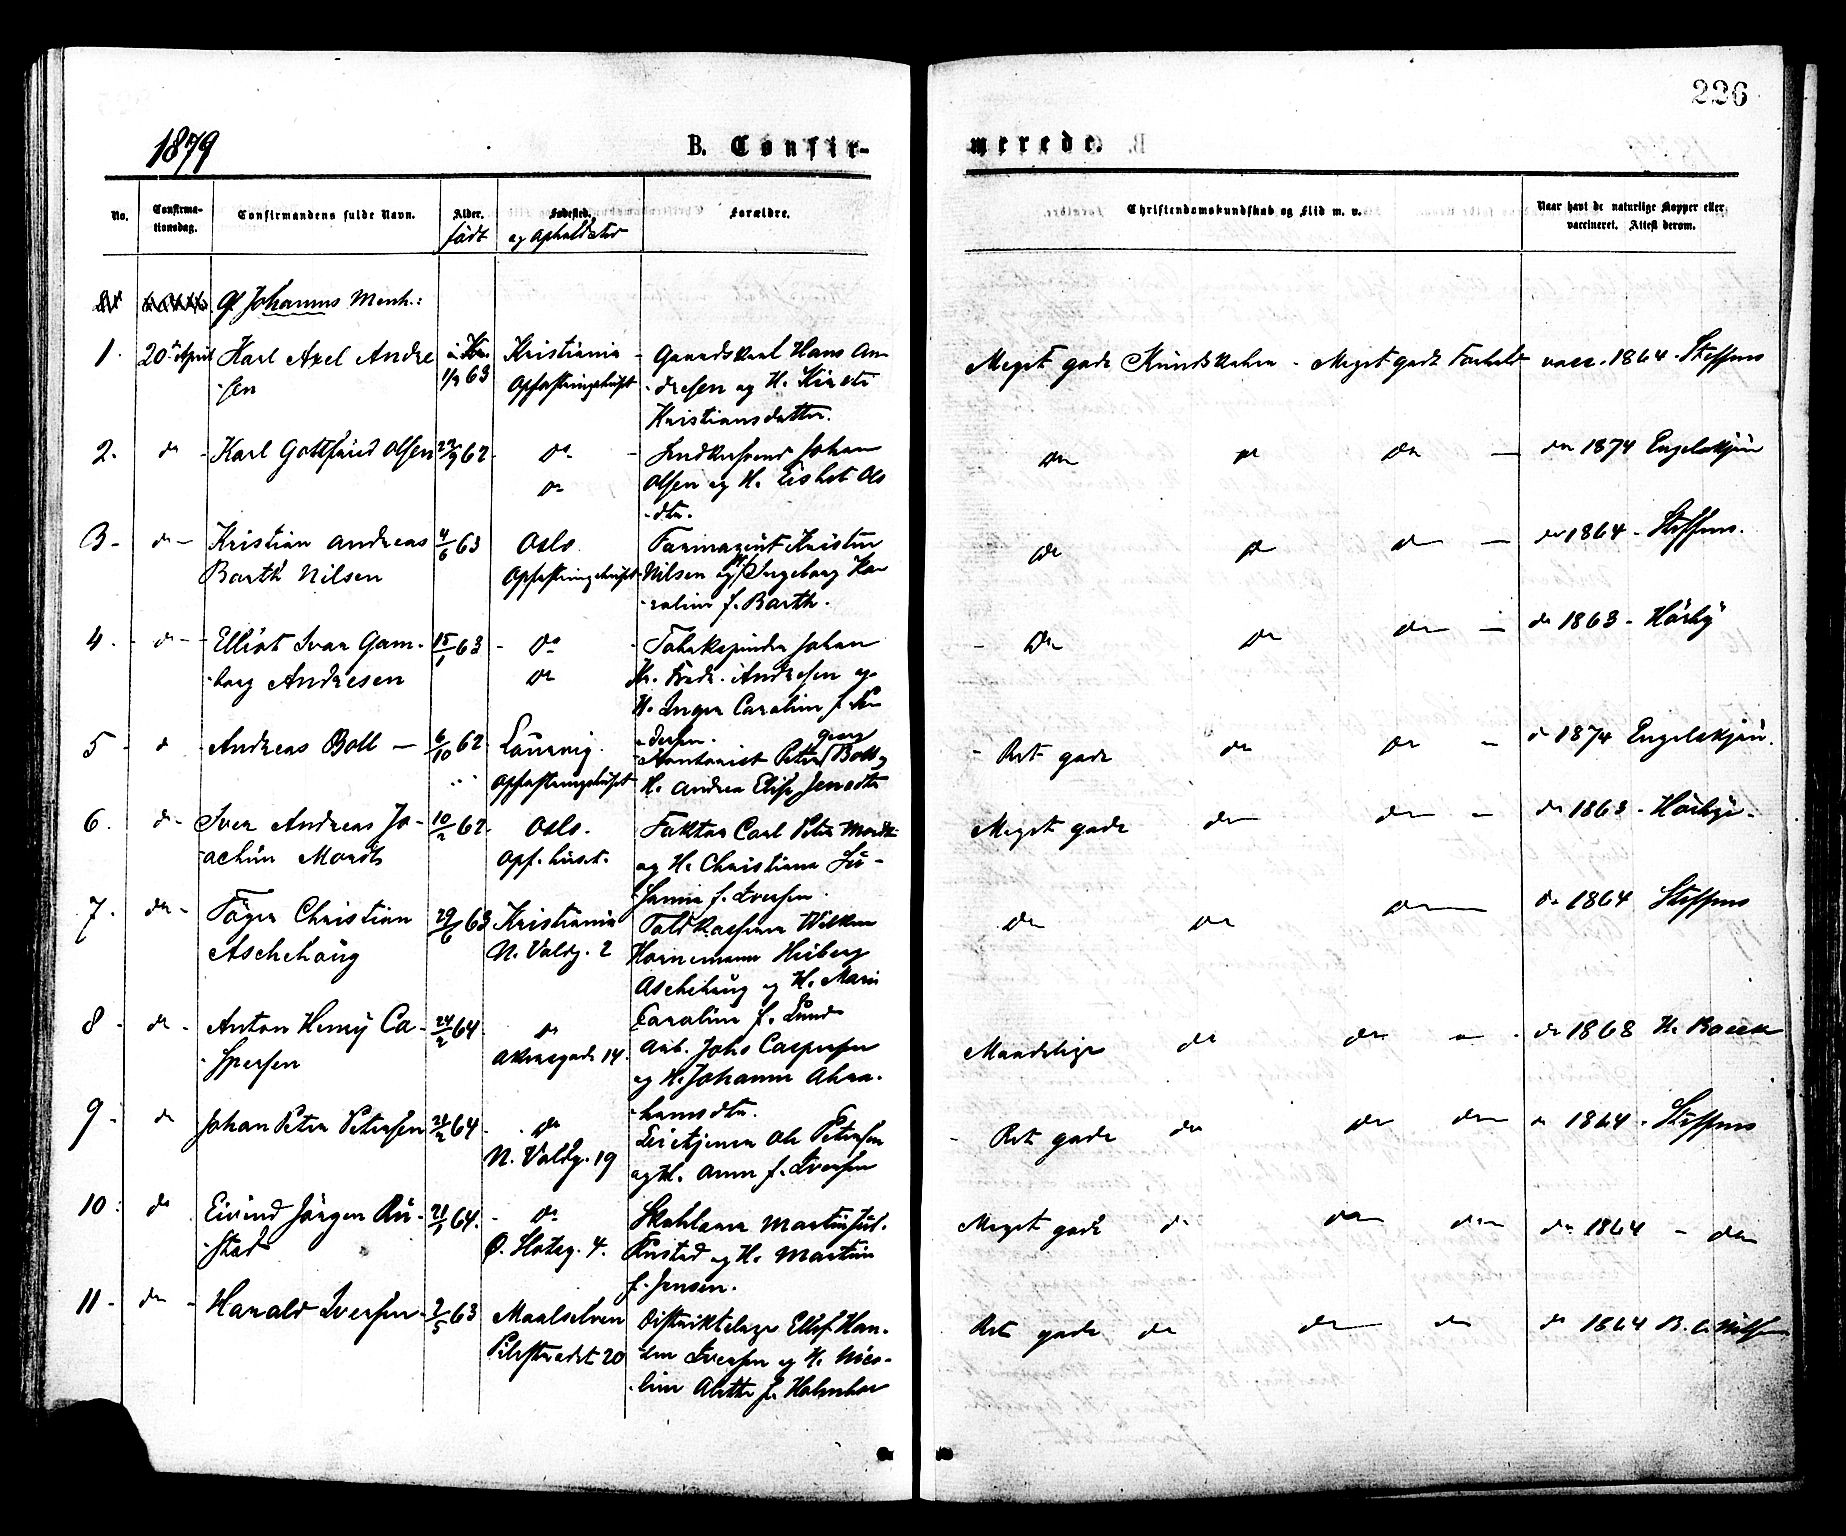 226
1879
B. Confir-
merede.
No.
Confirma-
tionsdag.
Confirmandens fulde Navn.
Alder.
född
Fødested.
og Opholdsted
Forældre.
Christendomskundskab og Flid m. v.
Naar havt de naturlige Kopper eller
vaccineret. Attest derom.
Af Johannes Menh.:
1. 20de April Karl Axel Andre
-sen
1/9 63
Kristiania
Opfostringshuset
Gaardskarl Hans An-
dresen og H. Kirsti
Kristiansdatter.
Meget gode Kundskaber - Meget godt Forhold vacc. 1864. Steffens
2. do Karl Gottfried Olsen 62 do
do
Johan
Olsen og H. Lisbet Ols
-dtr.
do do do do 1874 Engelskjön
3- do- Kristian Andreas
Barth Nilsen
4/6 63 Oslo
Opfostringshuset
Farmaceut Kristen
Nilsen og H. Ingeborg Ka
-roline f. Barth.
do do do do 1864 - Steffens.
4. do- Elliot Ivar Gam-
-borg Andresen
15/1 63 do
do
Tobakspinder Johan
Kr. Fredr. Andresen og
H. Inger Caroline f. Pe
-dersen.
do do do do 1863 - Hörbÿ
5- do Andreas Boll - 6/10 62 Laurvig.
Opfostringshuset
Kontorist Peter Georg Boll og
H. Andrea Elise Jensdtr
Ret gode do do do 1874 Engelskjön.
6. do- Iver Andreas Jo-
achim Mordt
10/2 62 Oslo.
Opf. huset.
Faktor Carl Peter Mordt
og H. Christiane Su-
-sanne f. Iversen.
Meget gode do do do 1863 - Hörbÿe.
7. do- Töger Christian
Aschehoug
29/6 63 Kristiania
N. Voldg. 2
Toldkasserer Wilken
Hornemann Heiberg
Aschehoug og H. Marie
Caroline f. Lund
do do do do 1864 Steffens
8- do- Anton Henrÿ Ca-
-spersen
24/2 64. do
Akersgade 14.
Arb. Johs Caspersen
og H. Johanne Abra-
-hamsdtr.
Maadelige do do do 1868 H. Boeck
9- do Johan Peter Petersen 64 do
N. Voldg. 19
Ole Petersen
og H. Anne f. Iversen
Ret gode do do do do 1864. Steffens
10: do Eivind Jörgen Ru-
-stad
64. do
Ø. Slotsg. 4.
Martin Jul.
Rustad og H. Martine
f. Jensen.
Meget gode do do do do 1864 - do
11- do- Harald Iversen 2/5 63 Maalselven
Pilestrædet 20
Distriktslæge Ellef Han-
sen Iversen og H. Nico-
-line Alette f. Holmboe
Ret gode do do do do 1864 B. C. Nilsen